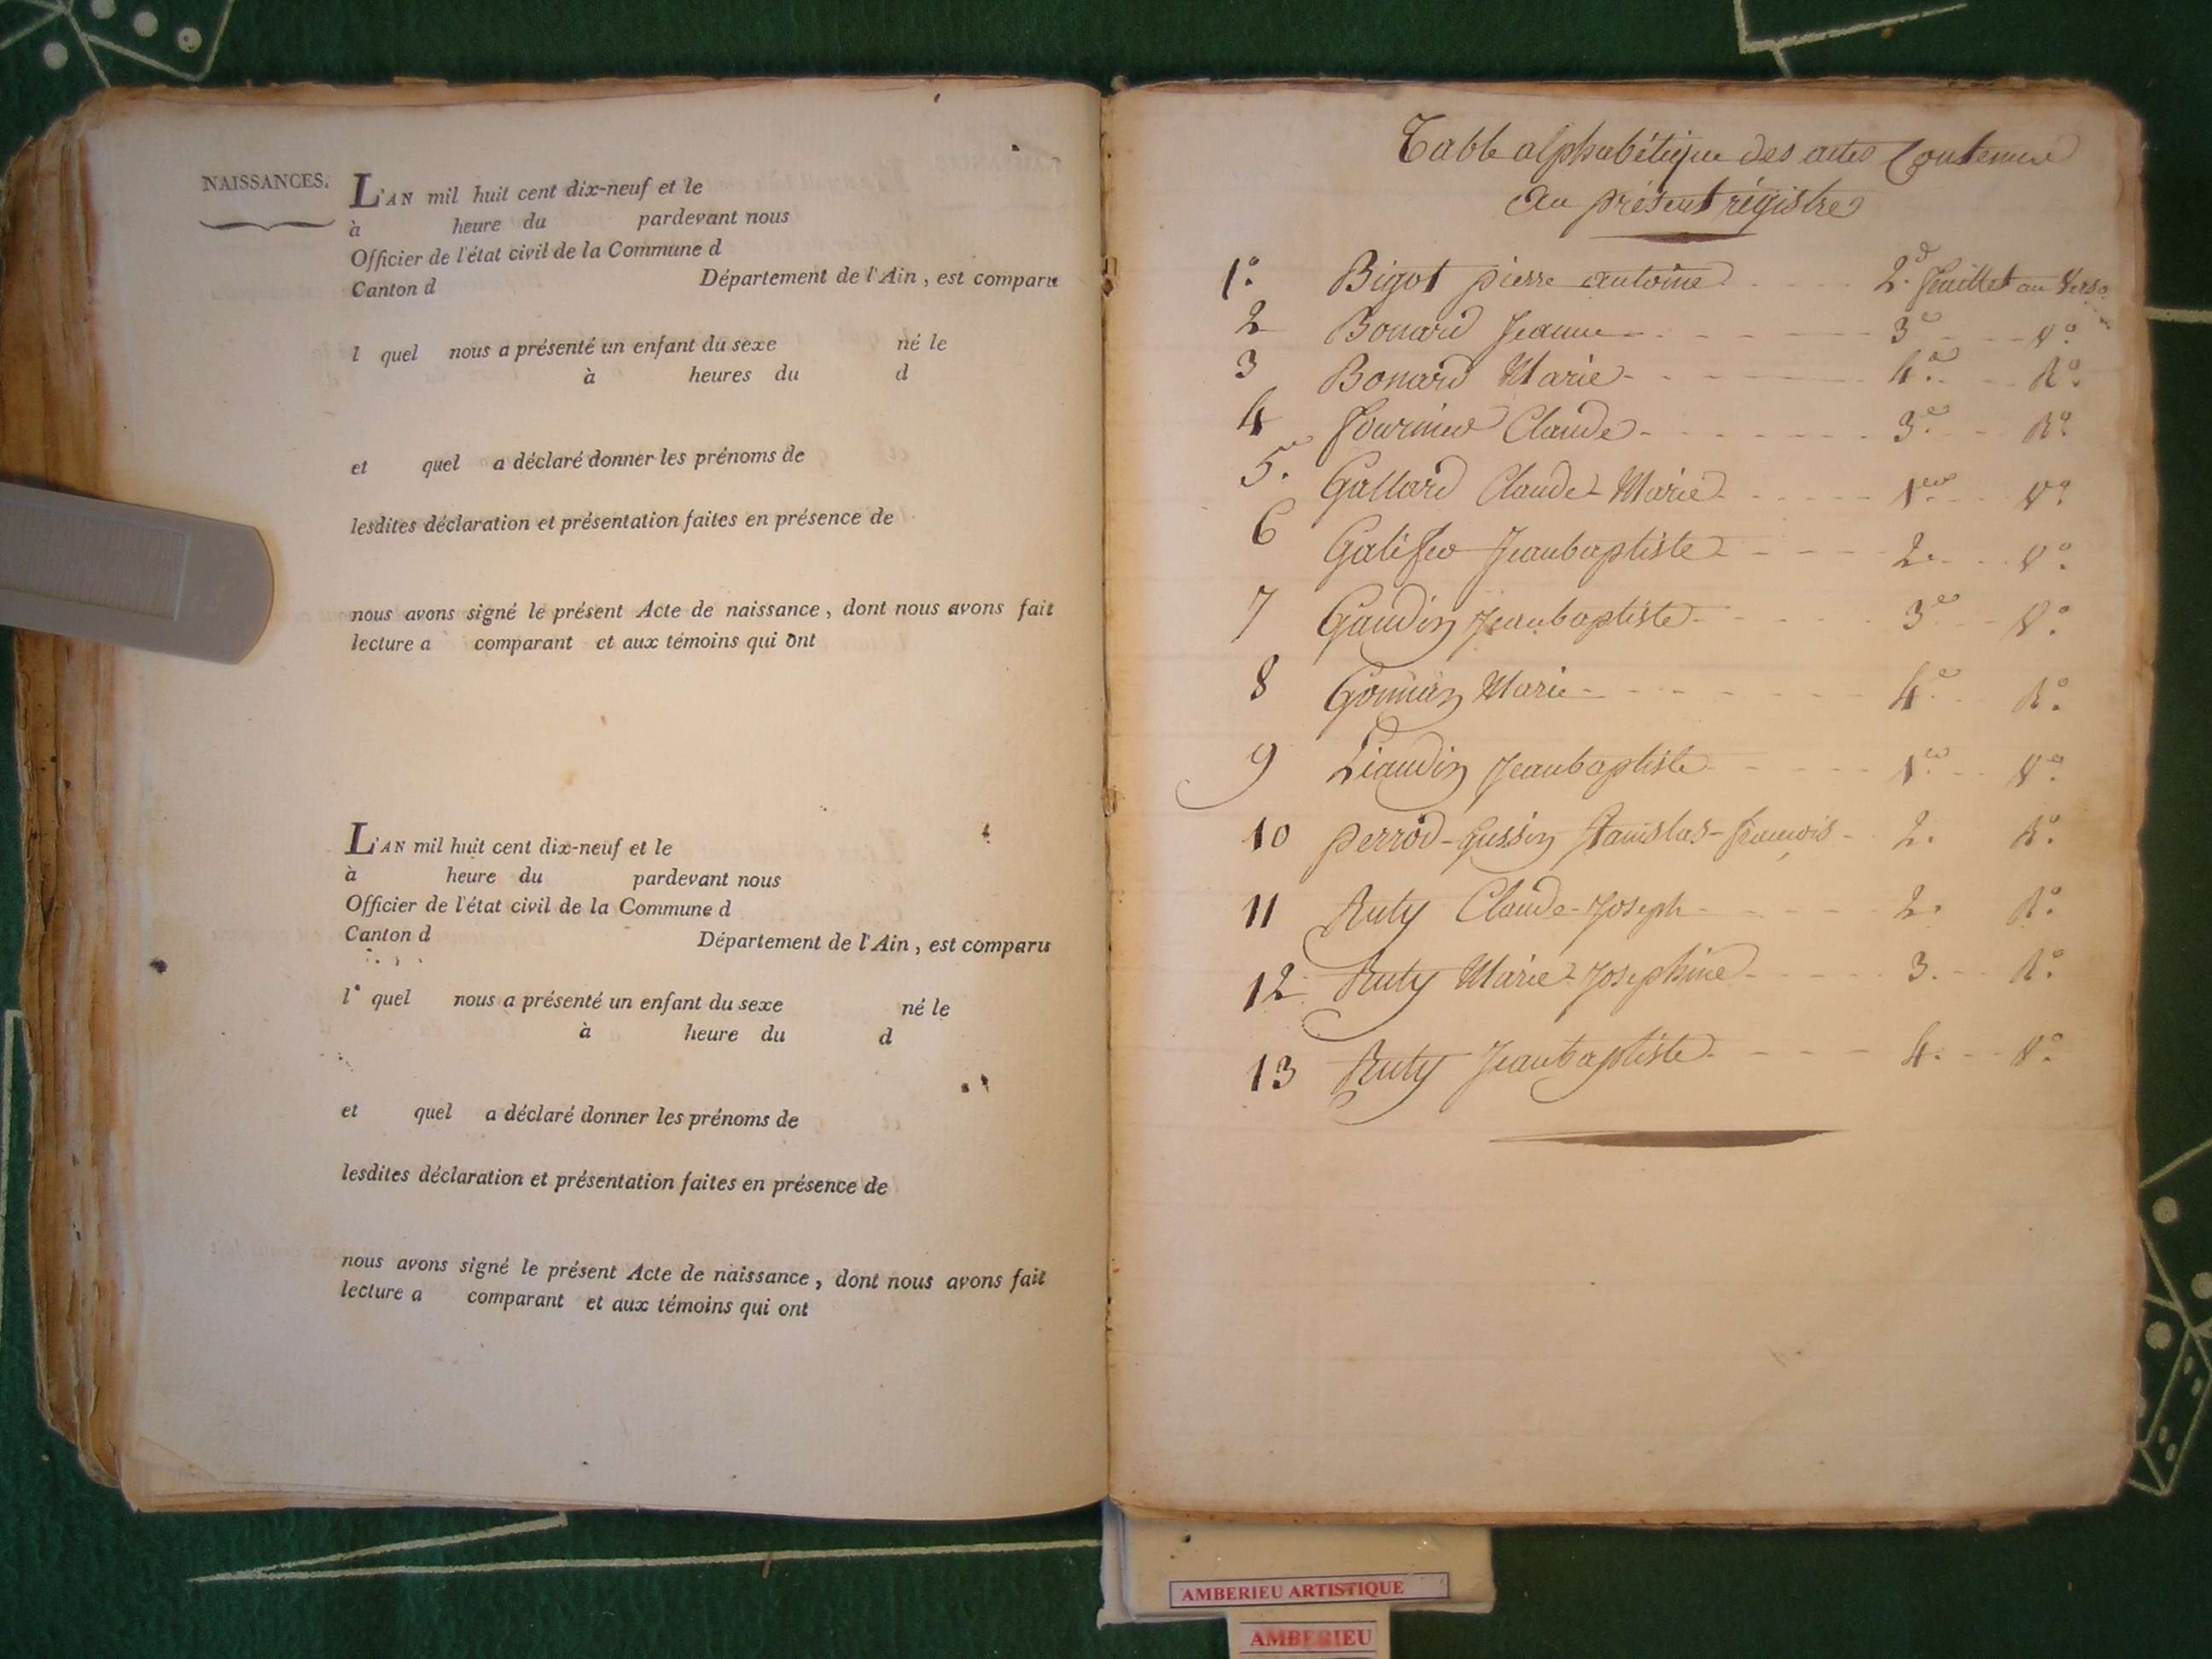 NAISSANCES.
L'AN mil huit cent dix-neuf et le
à heure du pardevant nous
Officier de l'état civil de la Commune d
Canton d Département de l'Ain, est comparu
l quel nous a présenté un enfant du sexe né le
à heures du d
et quel a déclaré donner les prénoms de
lesdites déclaration et présentation faites en présence de
nous avons signé le présent Acte de naissance, dont nous avons fait
lecture a comparant et aux témoins qui ont
L'AN mil huit cent dix-neuf et le
à heure du pardevant nous
Officier de l'état civil de la Commune d
Canton d Département de l'Ain, est comparu
l quel nous a présenté un enfant du sexe né le
à heure du d
et quel a déclaré donner les prénoms de
lesdites déclaration et présentation faites en présence de
nous avons signé le présent Acte de naissance, dont nous avons fait
lecture a comparant et aux témoins qui ont
Table alphabétique des actes Contenus
Au présent régistre
1° Bigot pierre antoine 2d feuillet au Verso
2 Bonard Jeanne 3e V°
3 Bonard Marie 4e R°
4 fournier Claude 3e R°
5. Gallard Claude-Marie 1er V°
6 Jeanbaptiste 2. V°
7 Gaudin Jeanbaptiste 3e V°
8 Marie 4e R°
9 Liaudin Jeanbaptiste 1er V°
10 perrod-gussin Stanislas-françois 2. R°
11 Ruty Claude-Joseph 2. R°
12 Ruty Marie-Josephine 3. R°
13 Ruty Jeanbaptiste 4. V°
AMBERIEU ARTISTIQUE
AMBERIEU